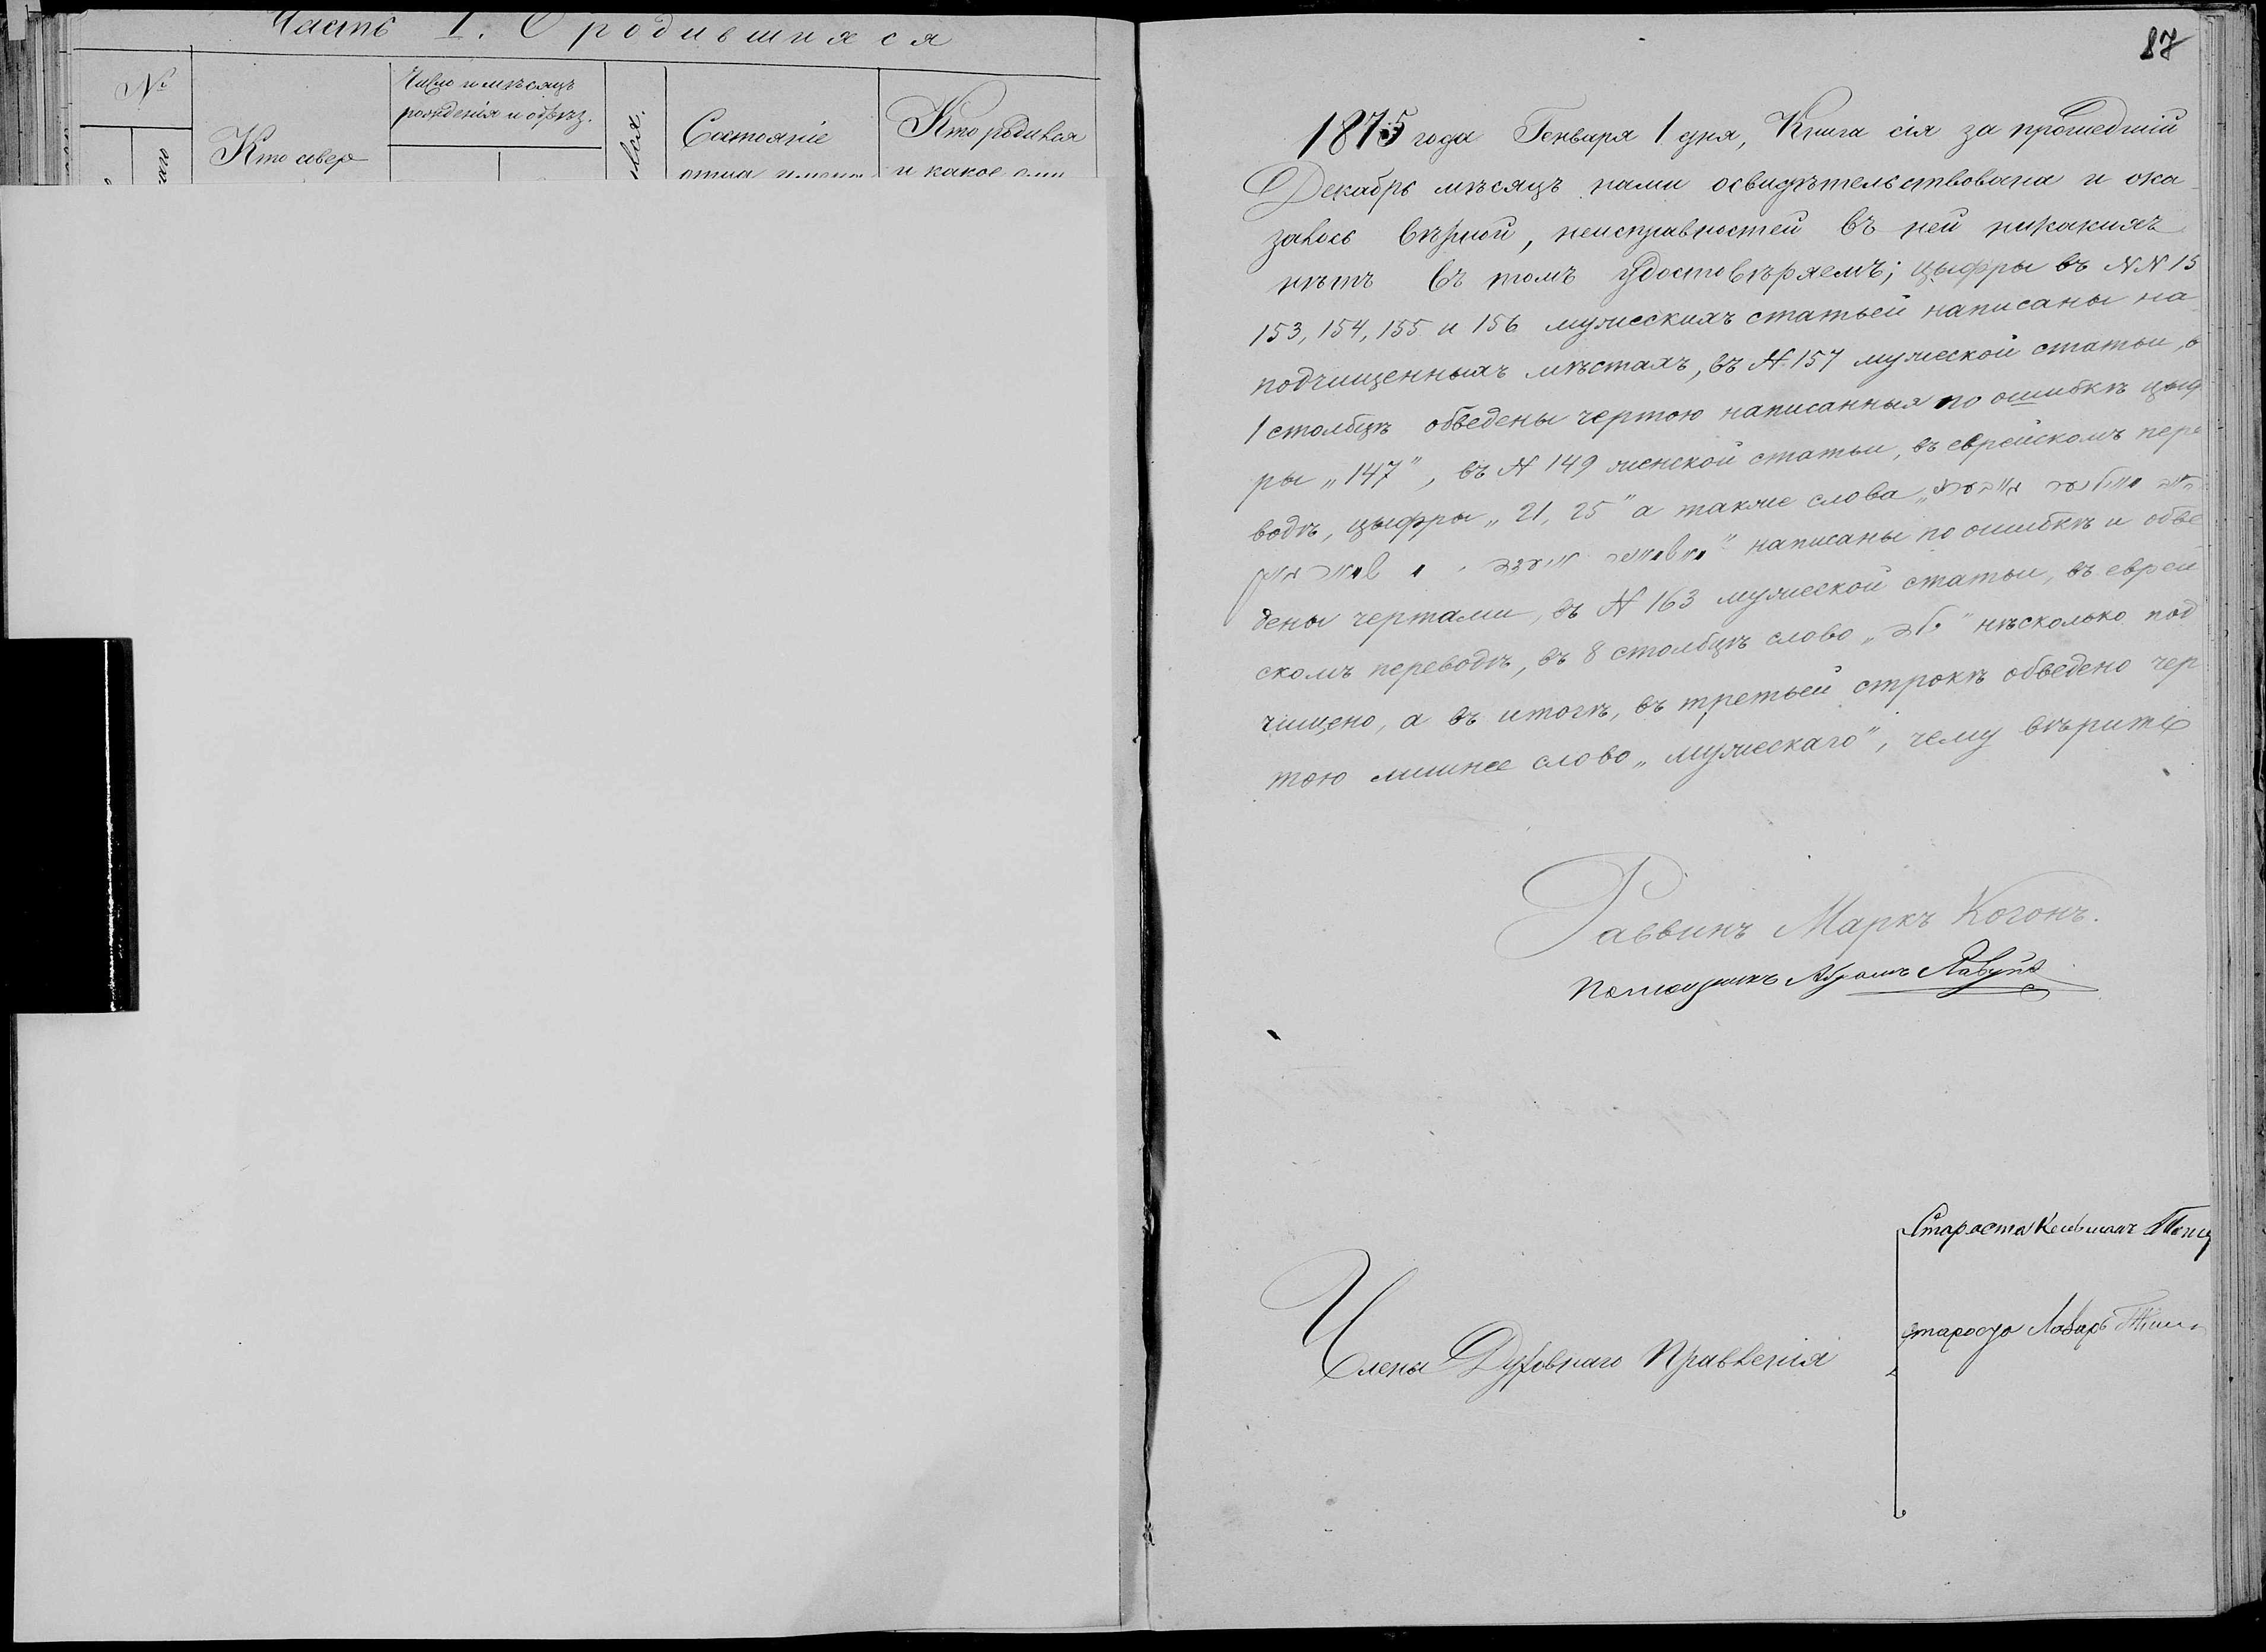 Часть I. О родившихся
№
Число и мѣсяцъ
рожденія и обрѣз.
Кто совер
Состояніе
Кто родился
отца
и какое
87
1875 года Генваря 1 дня, Книга сія за прошедшій
Декабрь мѣсяцъ нами освидѣтельствована и ока
залось вѣрной, неисправностей въ ней никакихъ
нѣтъ въ томъ удостовѣряемъ; цыфры въ NN 15
153, 154, 155 и 156 мужескихъ статьей написаны на
подчищенныхъ мѣстахъ, въ N 157 мужеской статьи, в
1 столбцѣ обведены чертою написанныя по ошибкѣ цыф
ры „147", въ N 149 женской статьи, въ еврейскомъ пере
водѣ, цыфры „21, 25" а также слова
написаны по ошибкѣ и обве
дены чертами, въ N 163 мужеской статьи, въ еврей
скомъ переводѣ, въ 8 столбцѣ слово нѣсколько под
чищено, а въ итогѣ, въ третьей строкѣ обведено чер
тою лишнее слово „мужескаго", чему вѣрить
Раввинъ Маркъ Когонъ.
Помощникъ Абрамъ
Староста
староста Лазарь
Члены Духовнаго Правленія